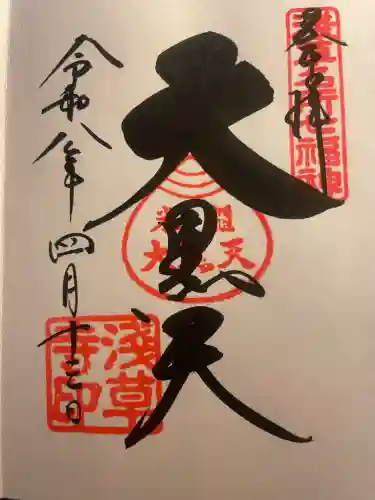 奉拝
淺草名所七福神
大黒天
令和八年四月十三日
淺草
寺印